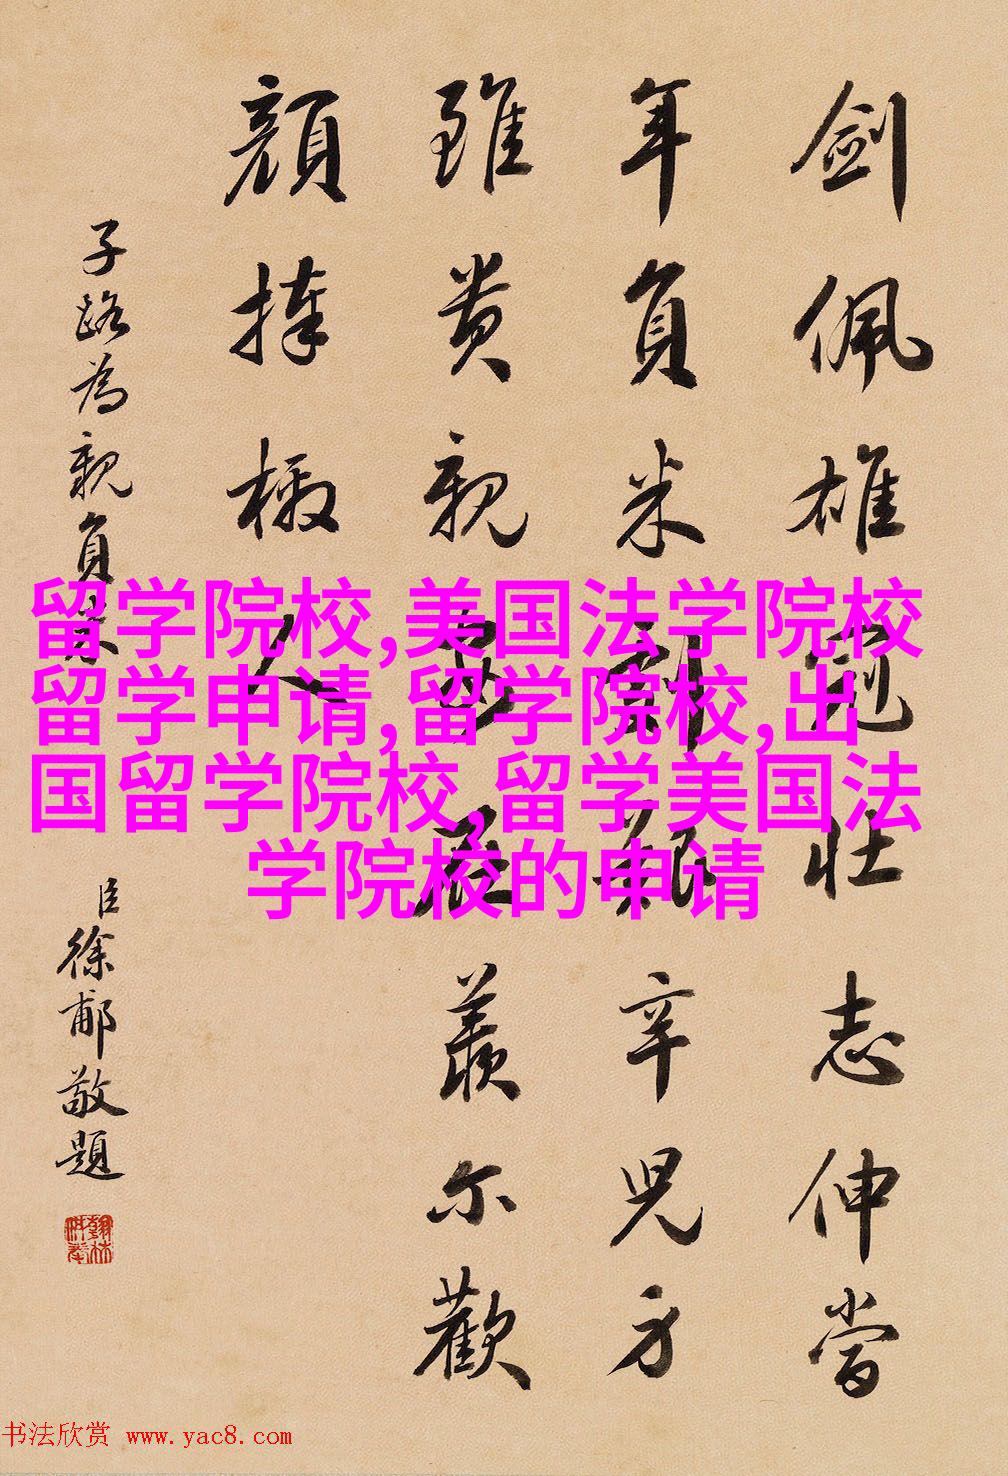 劍佩雄冠壯志伸當
年負米艱辛兒方
雖貴親羨爾歡
顏捧檄人
子路為親負米
臣徐郙敬題
留学院校,美国法学院校
留学申请,留学院校,出
国留学院校,留学美国法
学院校的申请
书法欣赏 www.yac8.com